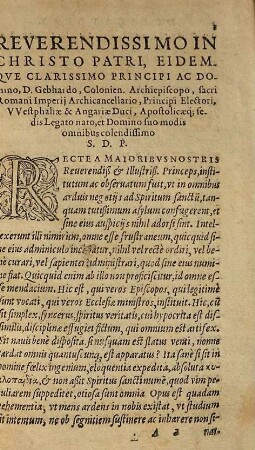 REVERENDISSIMO IN
CHRISTO PATRI, EIDEM-
QVE CLARISSIMO PRINCIPI AC DO-
mino, D. Gebhardo, Colonien. Archiepiscopo, sacri
Romani Imperij Archicancellario, Principi Electori,
VVestphaliæ & Angariæ Duci, Apostolicæq; se-
dis Legato nato, et Domino suo modis
omnibus colendissimo
S. D. P.
RECTE A MAIORIBVS NOSTRIS
Reuerendiß & Illustriß. Princeps, insti-
tutum ac obseruatum fuit, vt in omnibus
arduis negotijs ad Spiritum sanctũ, tan-
quam tutissimum asylum confugerem, et
sine eius auspicijs nihil adorsi sint. Intel-
lexerunt illi nimirum, omne esse frustraneum, quicquid si-
ne eius adminiculo inchoatur, nihil vel rectè ordiri, vel be-
nè curari, vel sapienter administrari, quod sine eius numi-
ne fiat. Quicquid enim ab illo non proficiscitur, id omne es-
se mendacium. Hic est, qui veros Episcopos, qui legitimè
sunt vocati, qui veros Ecclesiæ ministros, instituit. Hic, cũ
sit simplex, syncerus, spiritus veritatis, cui hypocrita est dis-
similis, discipline effugiet fictum, qui omnium est artifex.
Sit nauis benè disposita, si nusquam est status venti, nonne
tardat omnis quantuscunq, est apparatus? Ita sanè si sit in
homine fœlix ingenium, eloquentia expedita, absoluta κυ-
κλοπαιδία, & non aßit Spiritus sancti numẽ, quod vim pe-
culiarem suppeditet, otiosa sunt omnia. Opus est quadam
vehementia, vt mens ardens in nobis existat, vt studium
sit intentum, ne ob segnitiem sustinere ac inhærere non si-
A 2 mus